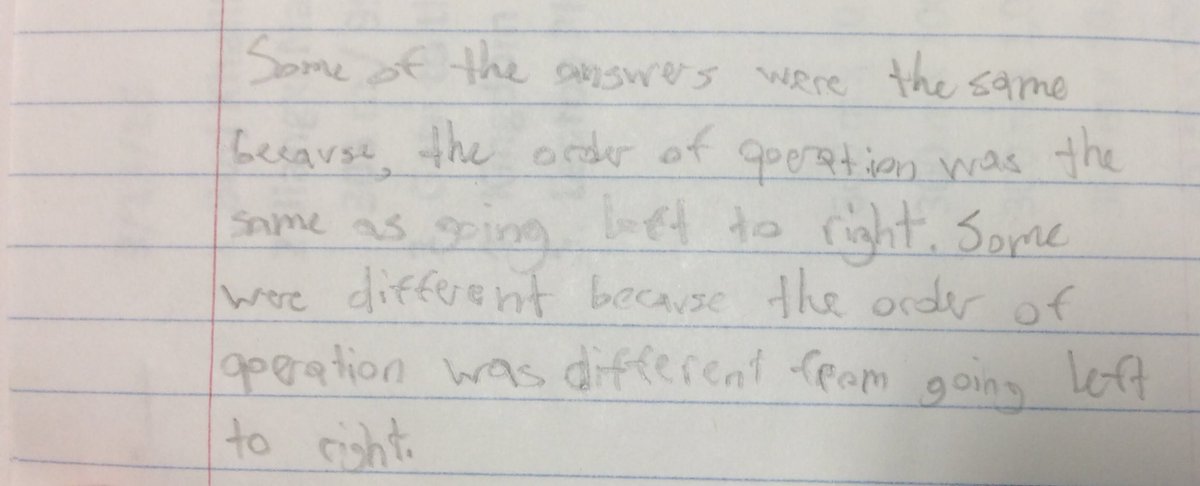 Some of the answers were the same
because, the order of operation was the
same as going left to right. Some
were different because the order of
operation was different from going left
to right.